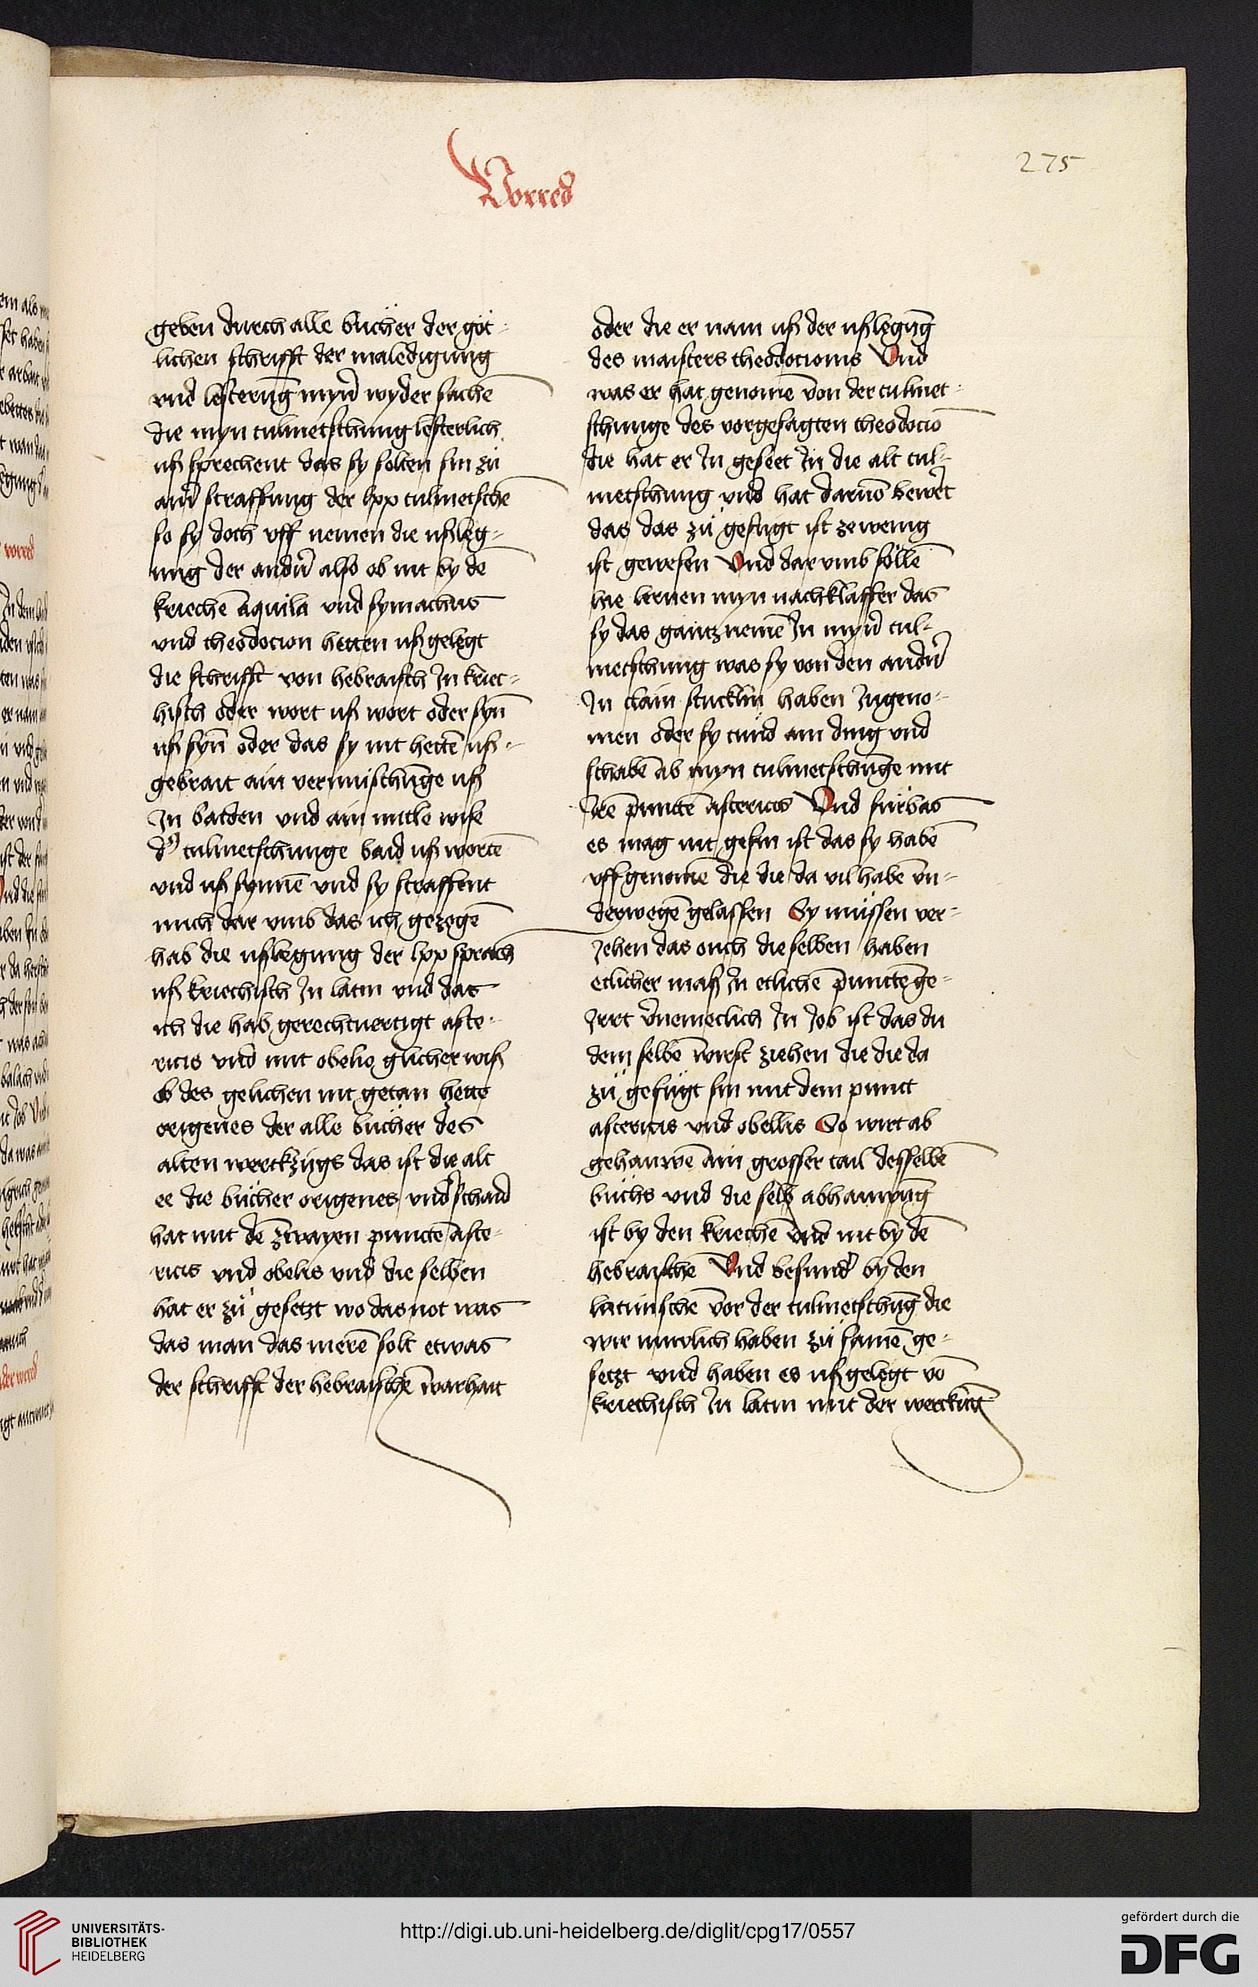 Vorred
275
geben durch alle bücher der göt-
lichen schrifft der maledigung
vnd lesterūg myn̄ wyder sachē
die myn tulmetschung lesterlich
uß sprechent das sy solten sin zü
ain̄ straffung der lxx tulmetschē
so sy doch vff nemen die ußleg-
ung der andn̄ also ob nit by dē
kriechē aquila vnd symachus
vnd theodocion hetten ußgelegt
die schrifft von hebraisch Jn kriec-
hisch oder wort uß wort oder syn̄
uß syn̄ oder das sy nit hettē uß-
gebrait ain vermischūge uß
Jn baiden vnd ain mitle wise
d' tulmetschunge baid uß wortē
vnd uß synnē vnd sy straffent
mich dar vmb das ich gezogē
hab die ußlegung der lxx sprāch
uß kriechisch Jn latin vnd das
ich die hab gerechtuertigt aste-
ricis vnd mit obelio glicher wiß
ob des gelichen nit getan hette
origenes der alle bücher des
alten werckzügs das ist die alt
ee die bücher origenes vnd'schaid
hat mit dē zwayen punctē aste-
ricis vnd obelis vnd die selben
hat er zü gesetzt wo das not was
das man das merē solt etwas
der schrifft der hebraischē warhait
oder die er nam uß der ußlegūg
des maisters theodocionis Vnd
was er hat genomē von der tulmet-
schunge des vorgesagten theodociō
die hat er Jn geseet Jn die alt tul-
metschung vnd hat darūb bewert
das das zü gefügt ist ze wenig
ist gewesen Vnd dar vmb söllē
hie lernen myn nachklaffer das
sy das gantz nemē Jn myn̄ tul-
metschung was sy von den andn̄
Jn clain stücklin haben Jngeno-
men oder sy tüind ain ding vnd
schabē ab myn tulmetschūge mit
Jrē punctē astericis Vnd fürbas
es mag nit gesin ist das sy habē
vff genomē die die da vil habē vn-
derwegē gelassen Sy müssen ver-
Jehen das ouch die selben haben
etlicher maß Jn etlichē punctē ge-
Jrrt v̄nemeclich Jn Job ist das du
dem selbē wirst ziehen die die da
zü gefügt sin mit dem punct
astericis vnd obellis So wirt ab
gehauwē ain grosser tail desselbē
büchs vnd die selb abhauwūg
ist by den kriechē vnd nit by dē
hebraischē Vnd besund' by den
latinischē vor der tulmetschūg die
wir nüwlich haben zü samē ge-
setzt vnd haben es ußgelegt vō
kriechisch Jn latin mit der werckūg
UNIVERSITÄTS-
BIBLIOTHEK
HEIDELBERG
http://digi.ub.uni-heidelberg.de/diglit/cpg17/0557
gefördert durch die
DFG